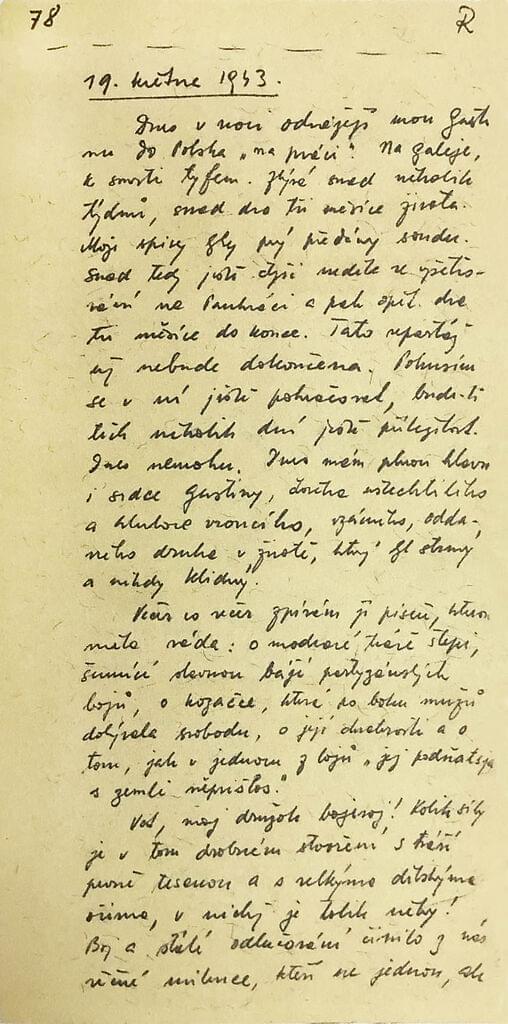 78 R
19. května 1943.
Dnes v noci odvážejí mou Gusti-
nu do Polska „na práci“. Na galeje,
k smrti tyfem. Zbývá snad několik
týdnů, snad dva tři měsíce života.
Moje spisy byly prý předány soudu.
Snad tedy ještě čtyři neděle ve vyšetřo-
vání na Pankráci a pak opět dva
tři měsíce do konce. Tato reportáž
už nebude dokončena. Pokusím
se v ní ještě pokračovat, bude-li
těch několik dní ještě příležitost.
Dnes nemohu. Dnes mám plnou hlavu
i srdce Gustiny, člověka ušlechtilého
a hluboce vroucího, vzácného, odda-
ného druha v životě, který byl
a nikdy klidný.
Večer co večer zpívám jí píseň, kterou
měla ráda: o modravé trávě stepi,
šumící slavnou bájí partyzánských
bojů, o kozačce, která po boku mužů
dobývala svobodu, o její chrabrosti a o
tom, jak v jednom z bojů „jej podňaťsja
s zemli něprišlos.“
Vot, moj družok bojevoj! Kolik síly
je v tom drobném stvoření s tváří
pevně tesanou a s velkýma dětskýma
očima, v nichž je tolik něhy!
Boj a stálé odlučování činilo z nás
věčné milence, kteří ne jednou, ale